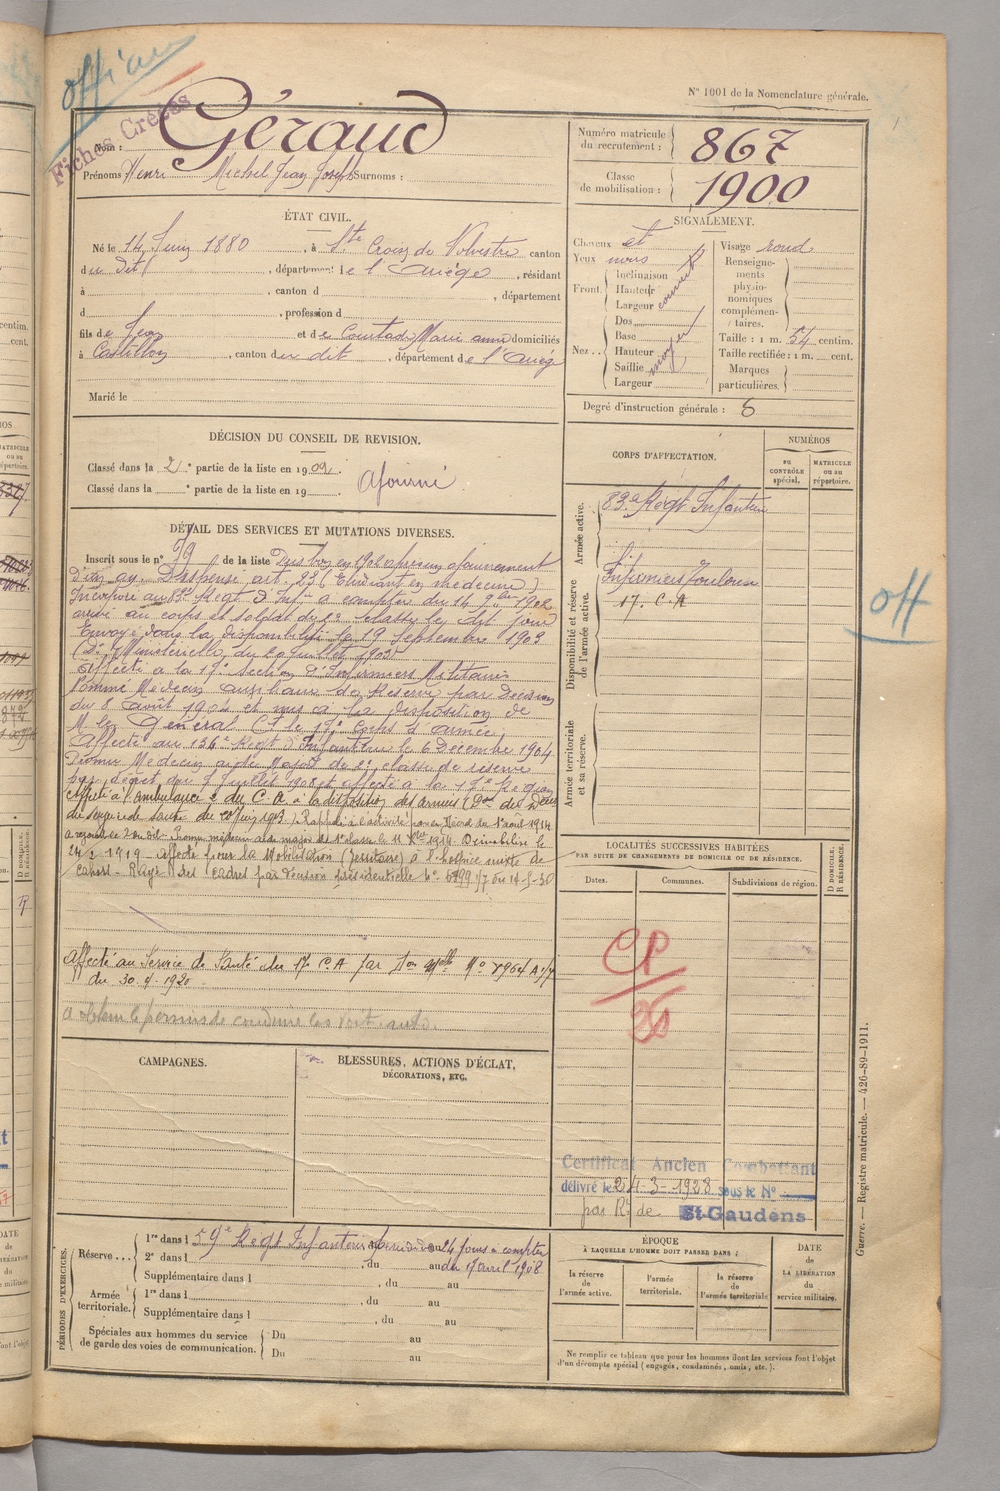 officier
Fiches Créées
N° 1001 de la Nomenclature générale.
Nom : Géraud
Prénoms Henri Michel Jean Joseph Surnoms :
Numéro matricule du recrutement : 867
Classe de mobilisation : 1900
ÉTAT CIVIL.
Né le 14 Juin 1880, à Ste Croix de Volvestre canton
du dit, département de l'Ariège, résidant
à , canton d , département
d , profession d
fils de Jean et de Courtade Marie Anne domiciliés
à Castillon, canton du dit, département de l'Ariège
Marié le
SIGNALEMENT.
Cheveux et
Yeux noirs
Front. Inclinaison
Hauteur
Largeur
couvert
Nez.. Dos
Base
Hauteur
Saillie
Largeur
moyen
Visage rond
Renseignements physionomiques complémentaires.
Taille : 1 m. 54 centim.
Taille rectifiée : 1 m. cent.
Marques particulières.
Degré d'instruction générale : 5
DÉCISION DU CONSEIL DE REVISION.
Classé dans la 2e partie de la liste en 1902.
Classé dans la e partie de la liste en 19 .
Ajourné
DÉTAIL DES SERVICES ET MUTATIONS DIVERSES.
Inscrit sous le n° 79 de la liste
d'un an. Dispensé art. 23 (Etudiant en médecine)
Incorporé au 83e Regt d'Infie à compter du 14 9bre 1902
arrivé au corps et soldat de 2e classe le dit jour
Envoyé dans la disponibilité le 19 Septembre 1903
(Dn Ministerielle du 20 Juillet 1903)
Affecté à la 17e section d'Infirmiers Militaires
comme Médecin auxiliaire de Réserve par Décision
du 8 août 1904 et mis à la disposition de
M. le Général Ct le 17e Corps d'armée,
Affecté au 134e Regt d'Infanterie le 6 Decembre 1904
Promu Médecin aide Major de 2e classe de réserve
par décret du 7 Juillet 1908 et affecté à la 17e Région
Affecté à l'ambulance 2 du C.A. à la disposition des armées
du service de santé du 20 Juin 1913). Rappelé à l'activité par Décret du 1er août 1914
a rejoint le 2 du dit. Promu médecin aide major de 1e classe le 11 Démobilisé le
24 2 1919. affecté pour la Mobilisation (Territoire) à l'hospice mixte de
Cahors. Rayé des Cadres par décision présidentielle n° 6899 1/7 du 14-5-30
Affecté au Service de Santé du 17e C.A par Don Mlle N° 8964 A 1/7
du 30.4.1920.
A obtenu le permis de conduire les voit. auto.
CORPS D'AFFECTATION.
NUMÉROS
au CONTRÔLE spécial.
MATRICULE ou au répertoire.
Armée active.
83e Regt Infanterie
Disponibilité et réserve de l'armée active.
Infirmiers Toulouse
17. C.A
off
Armée territoriale et sa réserve.
LOCALITÉS SUCCESSIVES HABITÉES
PAR SUITE DE CHANGEMENTS DE DOMICILE OU DE RÉSIDENCE.
D DOMICILE.
R RÉSIDENCE.
Dates.
Communes.
Subdivisions de région.
CP
Certificat Ancien Combattant
délivré le 24-3-1928 sous le N°
par Rt de St-Gaudens
CAMPAGNES.
BLESSURES, ACTIONS D'ÉCLAT,
DÉCORATIONS, ETC.
PÉRIODES D'EXERCICES.
Réserve... 1re dans l 59e Regt Infanterie période de 24 jours à compter
2e dans l , du au du 17 avril 1908
Supplémentaire dans l , du au
Armée territoriale. 1re dans l , du au
Supplémentaire dans l , du au
Spéciales aux hommes du service de garde des voies de communication. Du au
Du au
ÉPOQUE
À LAQUELLE L'HOMME DOIT PASSER DANS :
la réserve de l'armée active.
l'armée territoriale.
la réserve de l'armée territoriale
DATE de LA LIBÉRATION du service militaire.
Ne remplir ce tableau que pour les hommes dont les services font l'objet
d'un décompte spécial (engagés, condamnés, omis, etc.).
Guerre. — Registre matricule. — 426-89-1911.